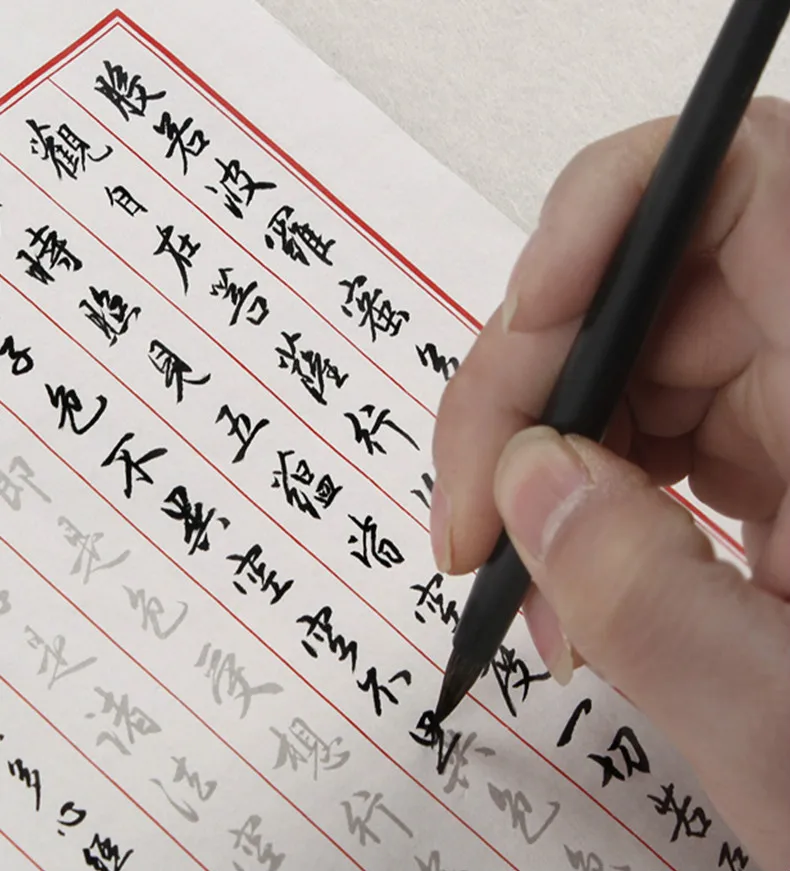 般若波羅蜜多
觀自在菩薩行
時照見五蘊皆空度一切苦厄
子色不異空空不異色
即是色受想行
是諸法空
多心經